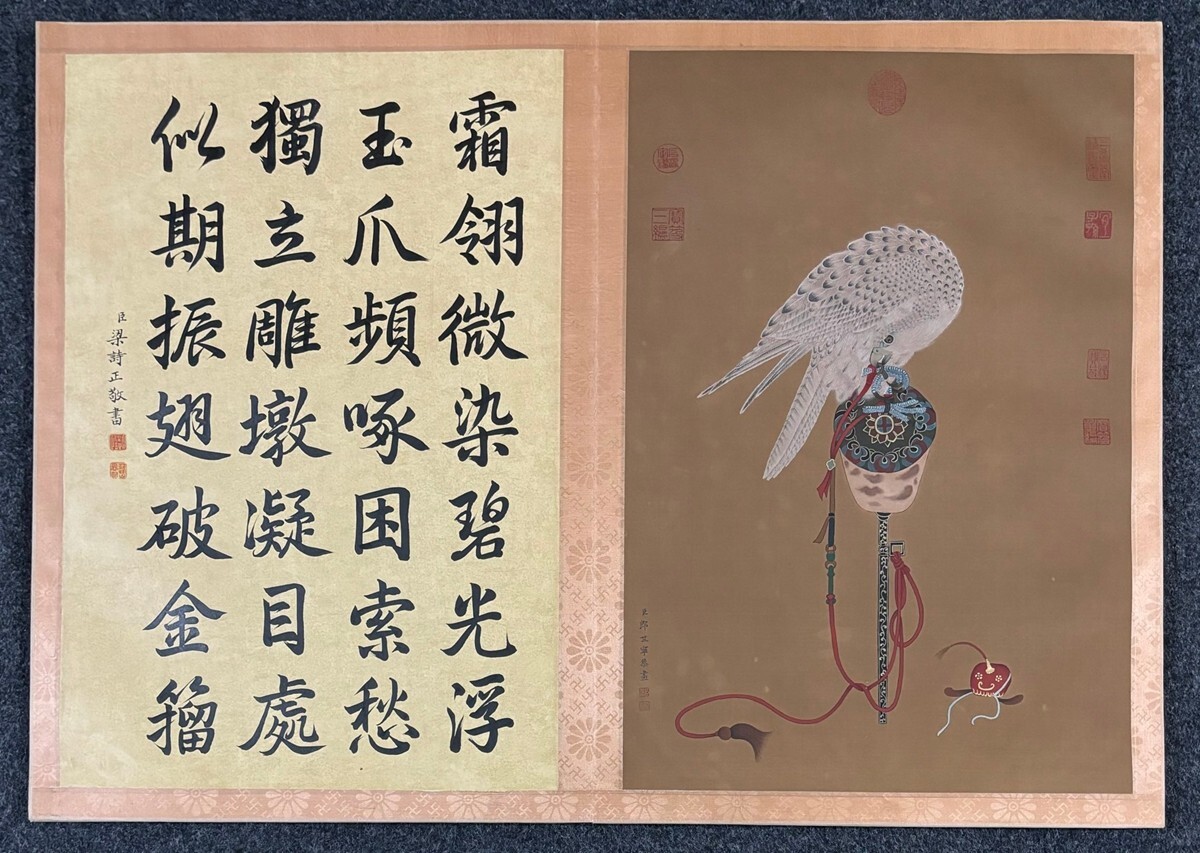 霜翎微染碧光浮
玉爪頻啄困索愁
獨立雕墩凝目處
似期振翅破金籀
臣梁詩正敬書
臣郎世寧恭畫